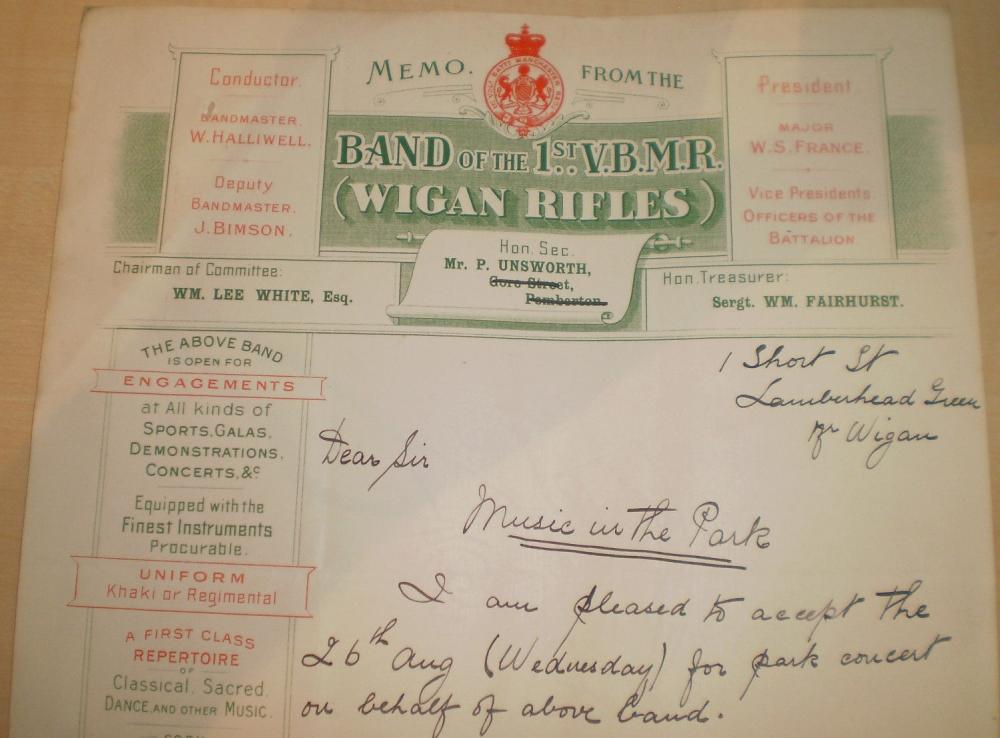 MEMO. FROM THE
BAND OF THE 1ST V.B.M.R.
(WIGAN RIFLES)
Conductor.
BANDMASTER.
W. HALLIWELL.
Deputy
BANDMASTER.
J. BIMSON.
President
MAJOR
W. S. FRANCE.
Vice Presidents
OFFICERS OF THE
BATTALION.
Chairman of Committee:
WM. LEE WHITE, Esq.
Hon. Sec.
Mr. P. UNSWORTH,
Gore Street,
Pemberton.
Hon. Treasurer:
Sergt. WM. FAIRHURST.
THE ABOVE BAND
IS OPEN FOR
ENGAGEMENTS
at All kinds of
SPORTS, GALAS,
DEMONSTRATIONS,
CONCERTS, &c
Equipped with the
Finest Instruments
Procurable.
UNIFORM
Khaki or Regimental
A FIRST CLASS
REPERTOIRE
OF
Classical, Sacred,
DANCE, AND OTHER MUSIC.
1 Short St
Lamberhead Green
Nr Wigan
Dear Sir
Music in the Park
I am pleased to accept the
26th Aug (Wednesday) for park concert
on behalf of above band.